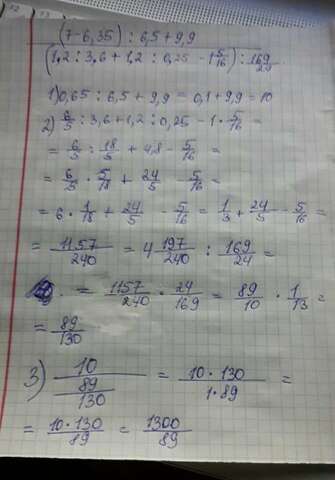 (7-6,35) : 6,5 + 9,9
(1,2 : 3,6 + 1,2 : 0,25 - 1 5/16) : 169/24
1) 0,65 : 6,5 + 9,9 = 0,1 + 9,9 = 10
2) 6/5 : 3,6 + 1,2 : 0,25 - 1 · 5/16 =
= 6/5 : 18/5 + 4,8 - 5/16 =
= 6/5 · 5/18 + 24/5 - 5/16 =
= 6 · 1/18 + 24/5 - 5/16 = 1/3 + 24/5 - 5/16 =
= 1157/240 = 4 197/240 : 169/24 =
= 1157/240 · 24/169 = 89/10 · 1/13 =
= 89/130
3) 10 / (89/130) = 10 · 130 / 1 · 89 =
= 10 · 130 / 89 = 1300/89